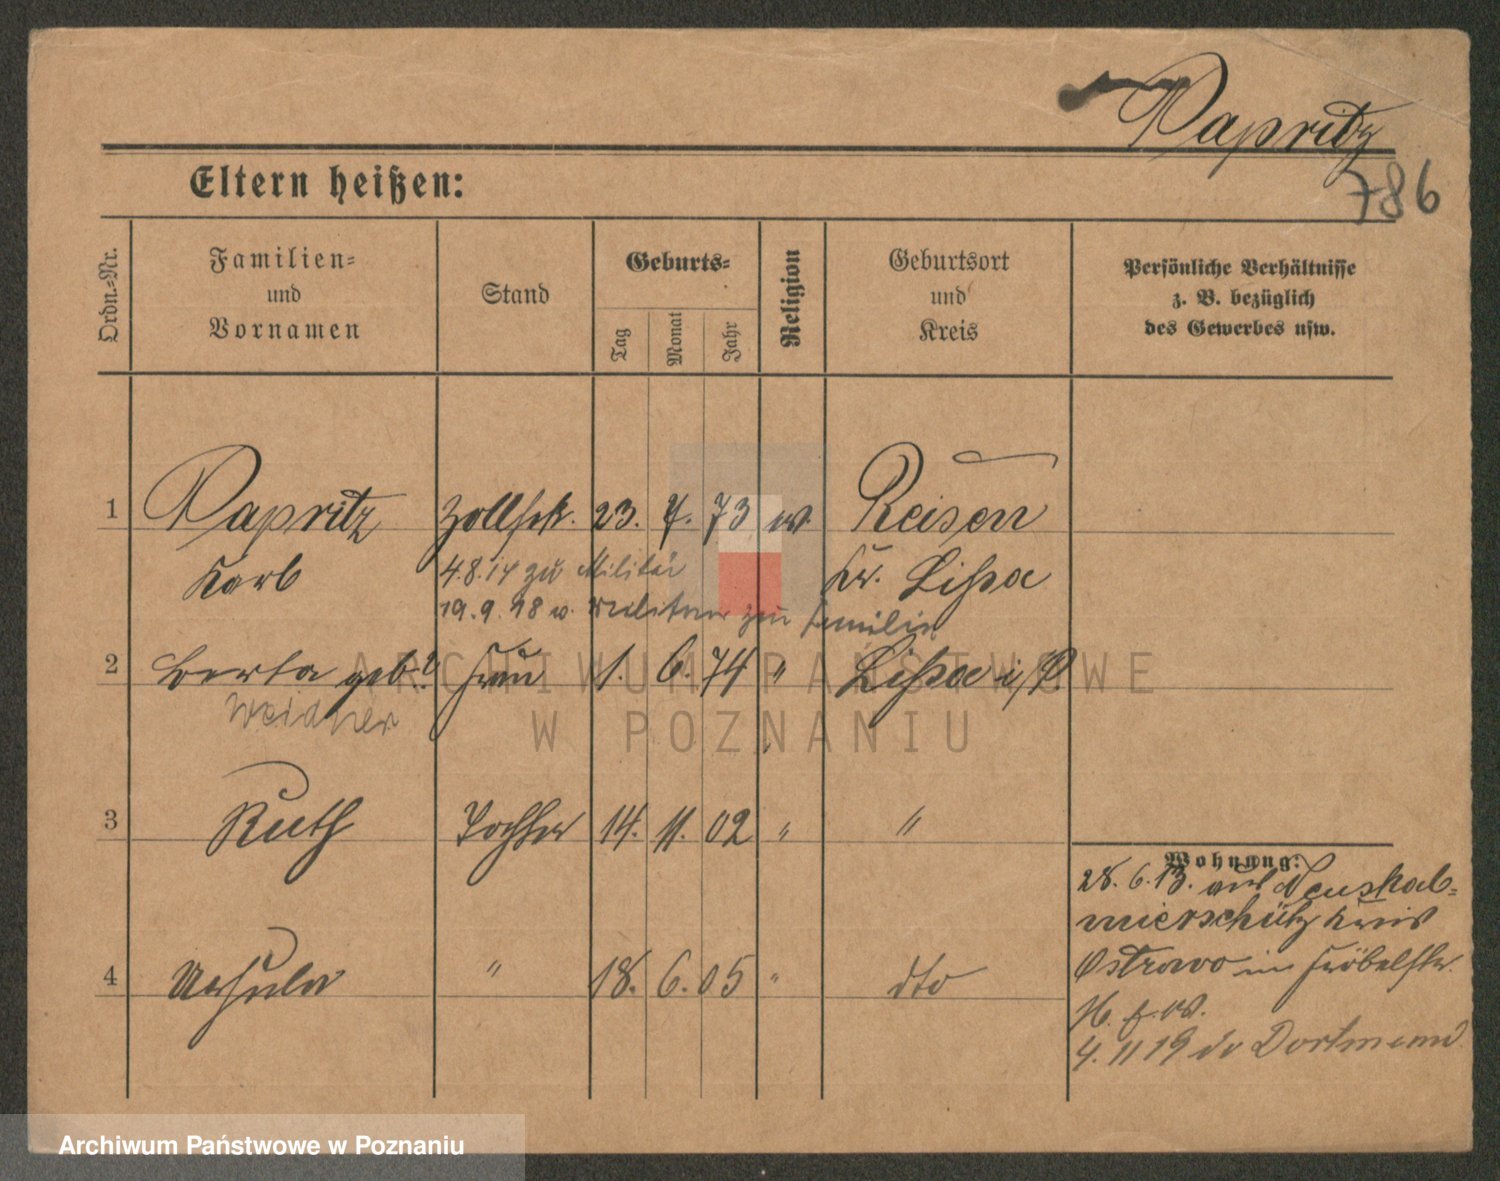 Papritz
Eltern heißen:
786
Ordn.=Nr.
Familien=
und
Vornamen
Stand
Geburts=
Tag
Monat
Jahr
Religion
Geburtsort
und
Kreis
Persönliche Verhältnisse
z. B. bezüglich
des Gewerbes usw.
1 Papritz Zollsek. 23. 7. 73 ev. Reisen
Karl 4.8.14 zu Militär Kr. Lissa
19.9.18 v. Militär zur Familie
2 Berta geb. Frau 1. 6. 74 " Lissa i/P
Weidner
3 Ruth Tochter 14. 11. 02 " "
Wohnung:
28. 6. 13. aus Neuskal=
mierschütz Kreis
4 Ursula " 18. 6. 05 " dto
Ostrowo in Fröbelstr.
4. 11 19 Dortmund
ARCHIWUM PAŃSTWOWE
W POZNANIU
Archiwum Państwowe w Poznaniu